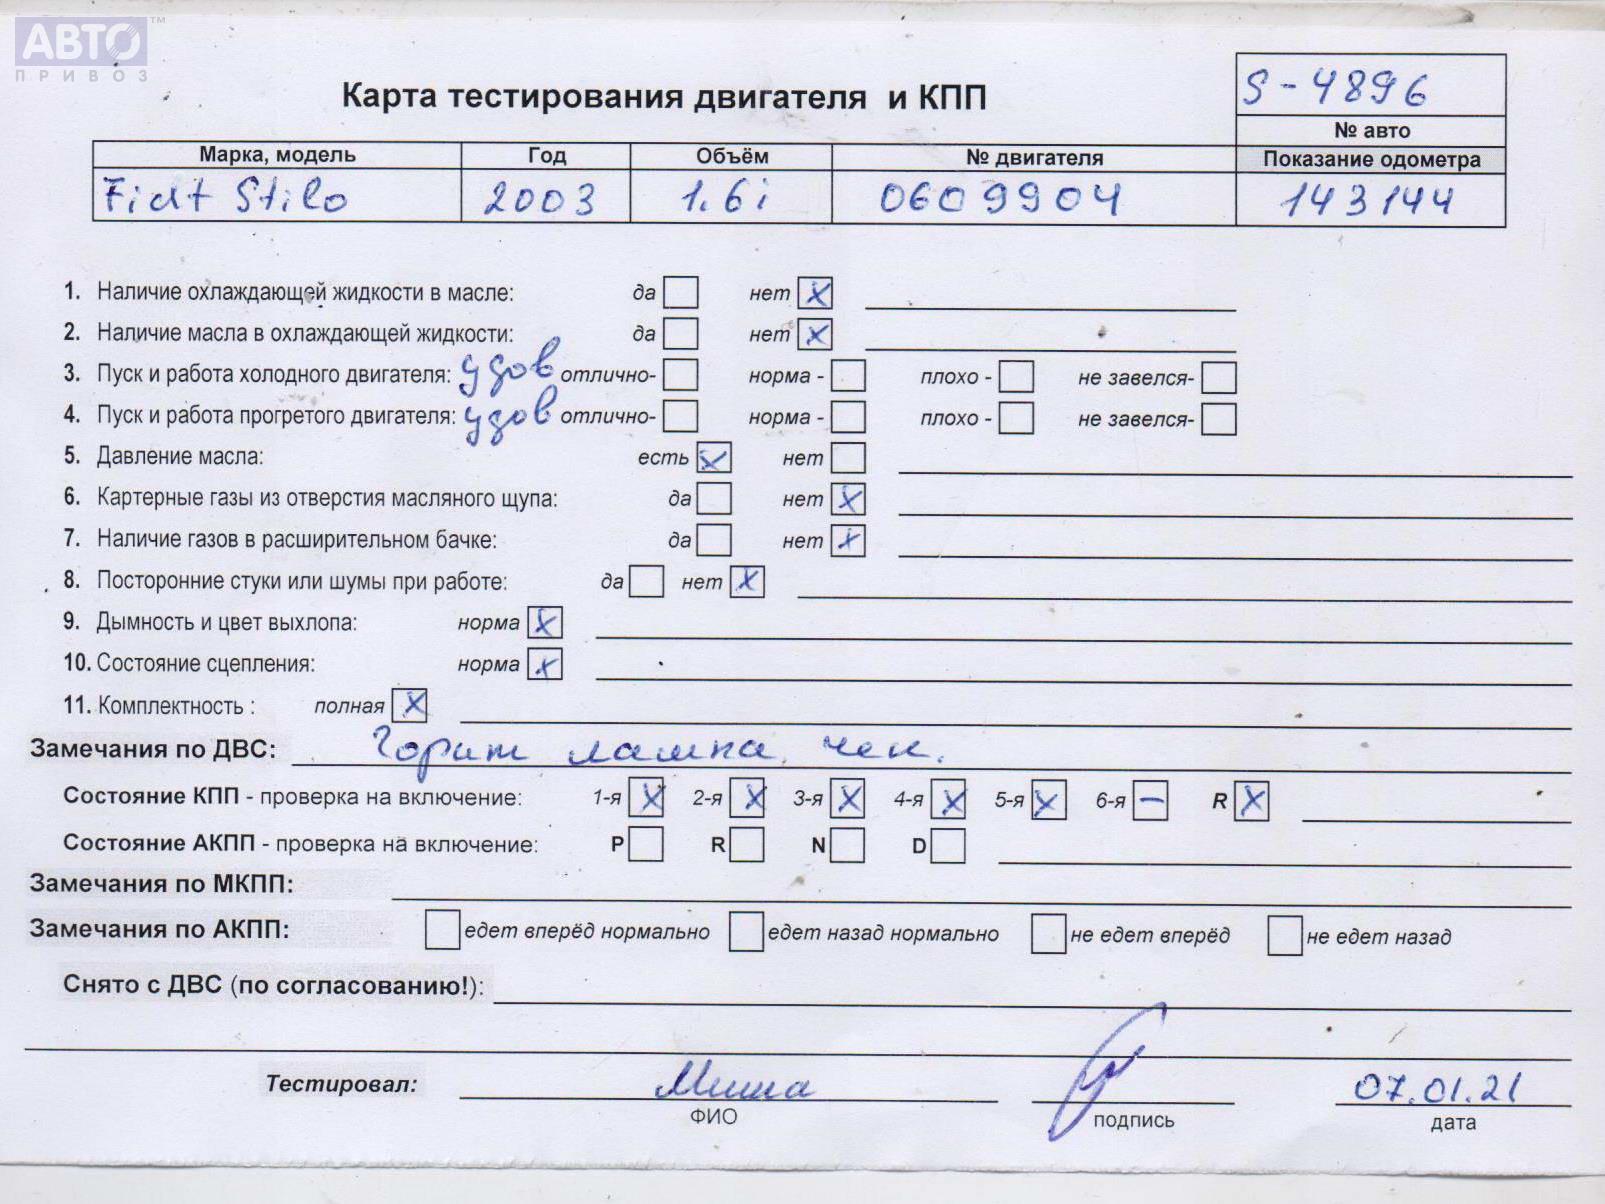 АВТО™
ПРИВОЗ
Карта тестирования двигателя и КПП
S-4896
№ авто
Марка, модель Год Объём № двигателя Показание одометра
Fiat Stilo 2003 1.6i 0609904 143144
1. Наличие охлаждающей жидкости в масле: да нет X
2. Наличие масла в охлаждающей жидкости: да нет X
3. Пуск и работа холодного двигателя: удов отлично- норма - плохо - не завелся-
4. Пуск и работа прогретого двигателя: удов отлично- норма - плохо - не завелся-
5. Давление масла: есть X нет
6. Картерные газы из отверстия масляного щупа: да нет X
7. Наличие газов в расширительном бачке: да нет X
8. Посторонние стуки или шумы при работе: да нет X
9. Дымность и цвет выхлопа: норма X
10. Состояние сцепления: норма X
11. Комплектность : полная X
Замечания по ДВС: Горит лампа чек.
Состояние КПП - проверка на включение: 1-я X 2-я X 3-я X 4-я X 5-я X 6-я – R X
Состояние АКПП - проверка на включение: P R N D
Замечания по МКПП:
Замечания по АКПП: едет вперёд нормально едет назад нормально не едет вперёд не едет назад
Снято с ДВС (по согласованию!):
Тестировал: Миша 07.01.21
ФИО подпись дата